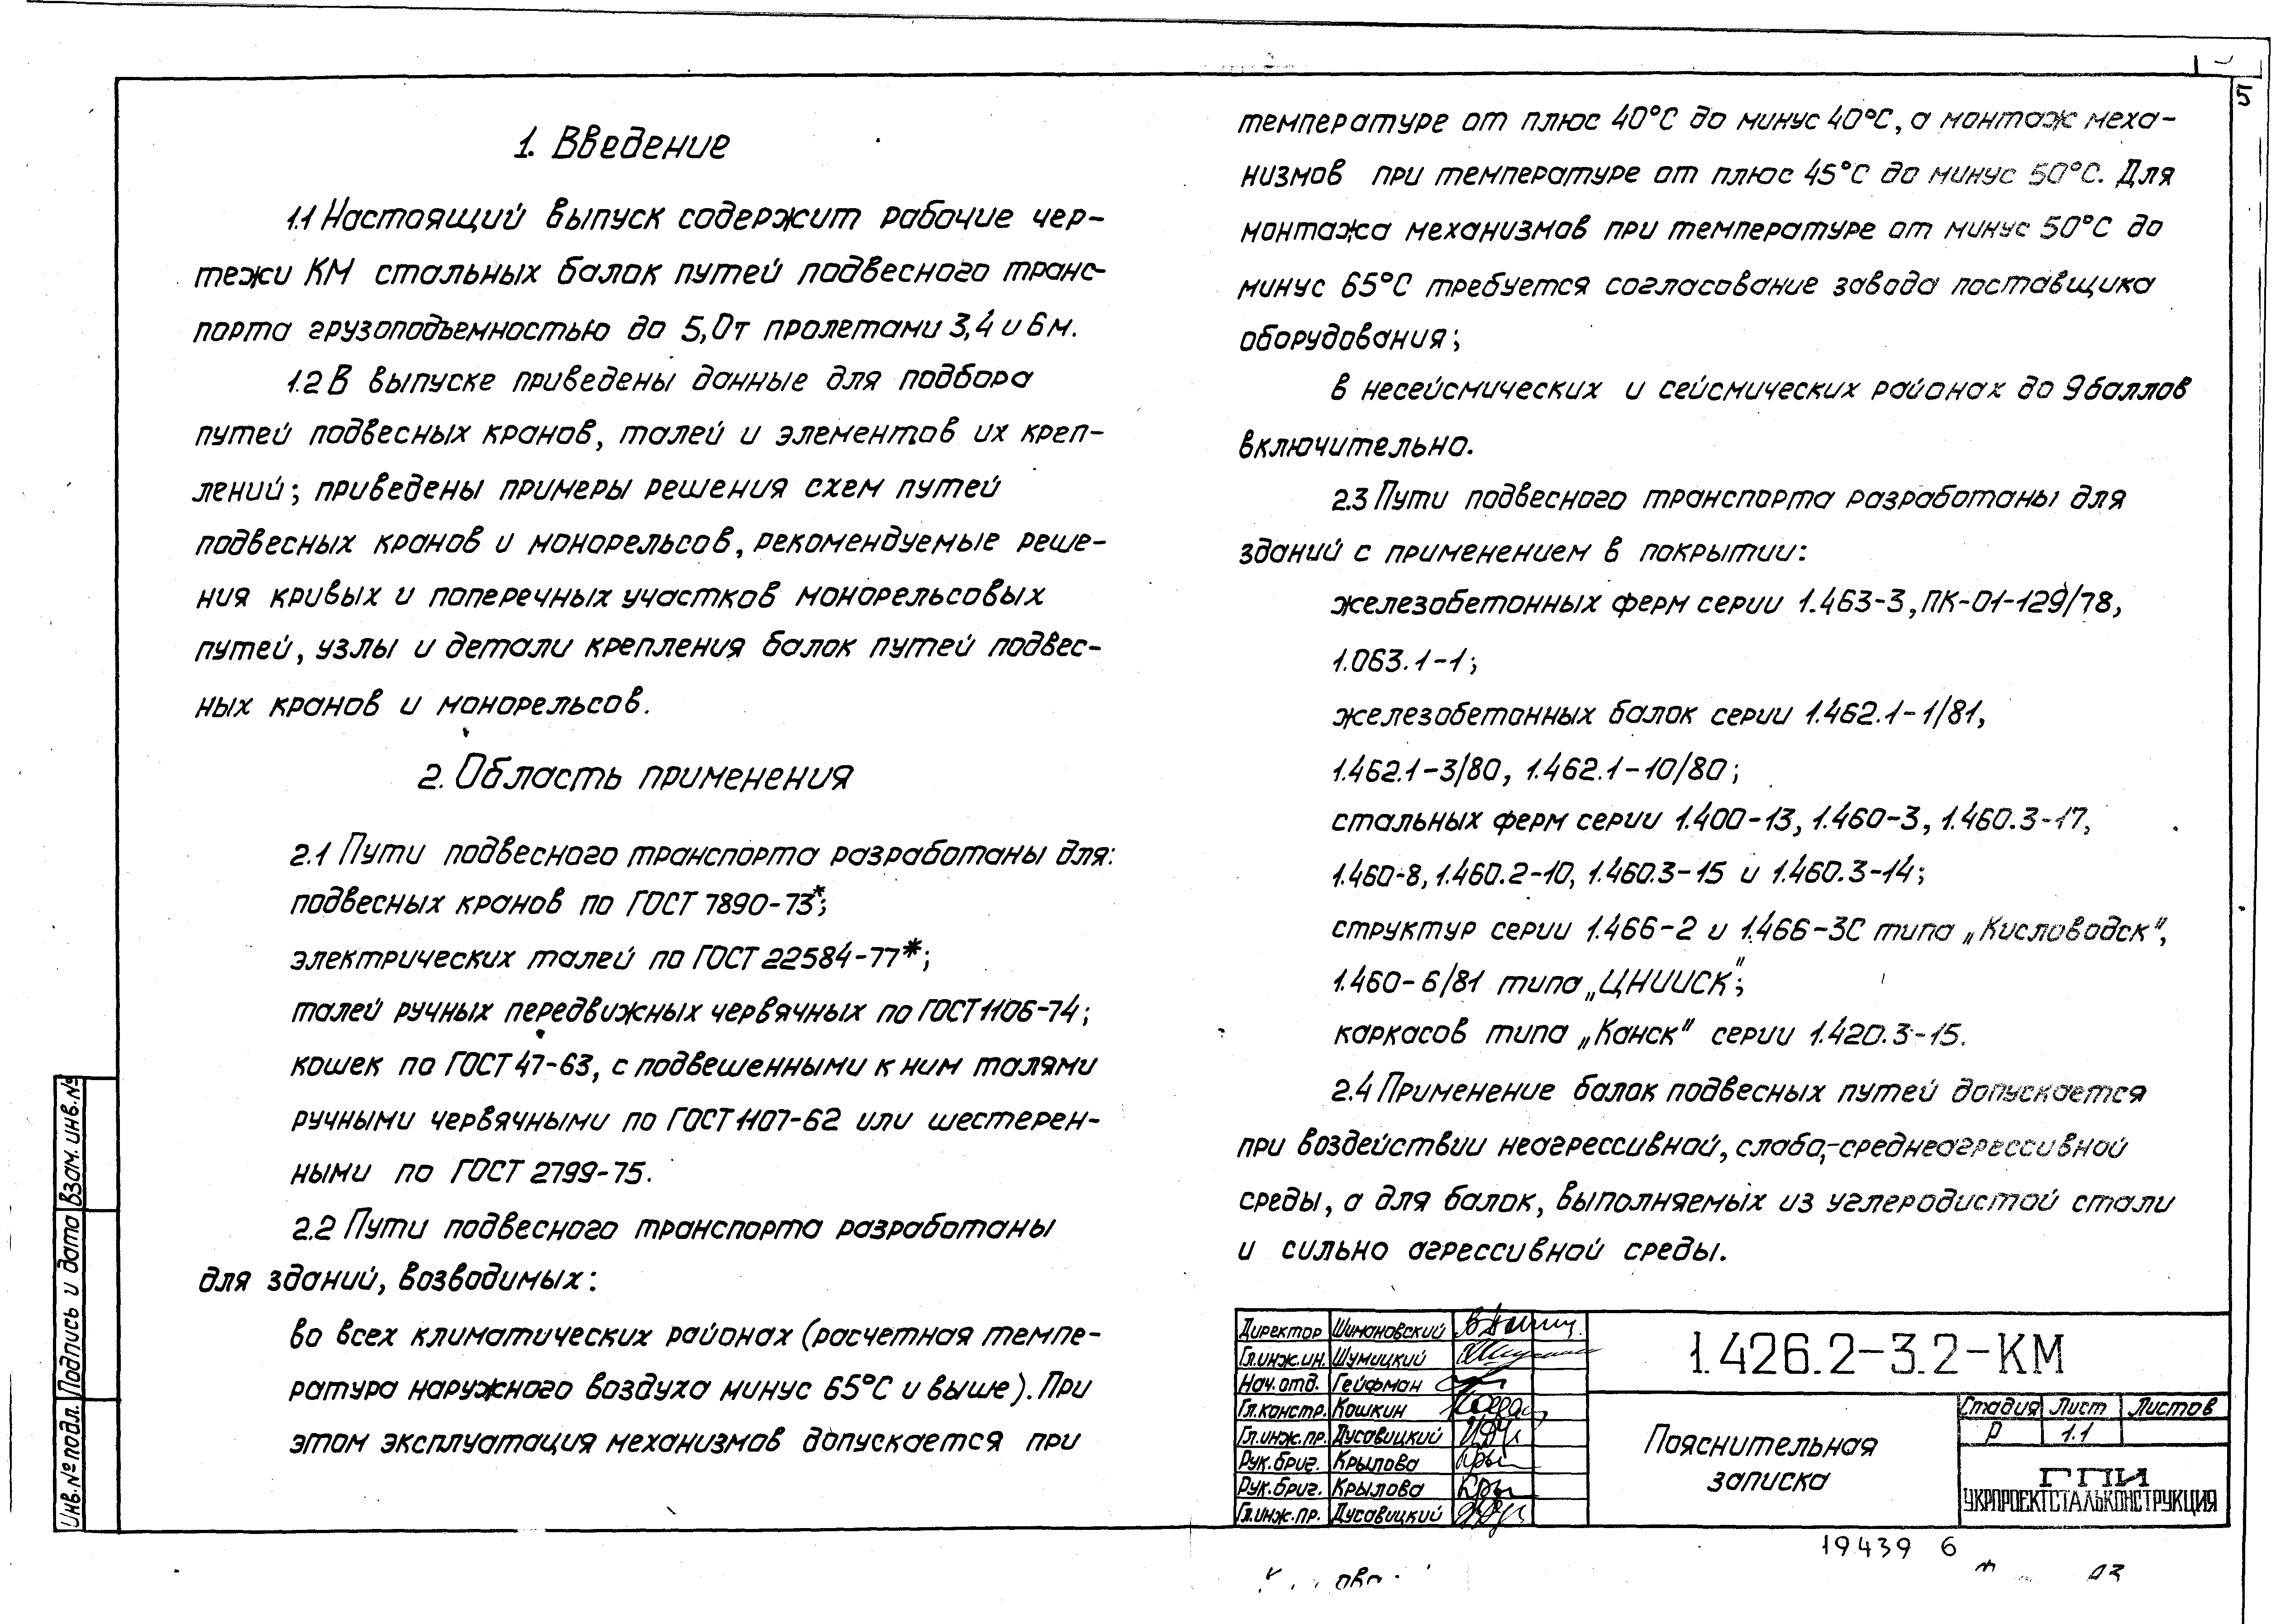 5
1. Введение
1.1 Настоящий выпуск содержит рабочие чер-
тежи КМ стальных балок путей подвесного транс-
порта грузоподъемностью до 5,0т пролетами 3,4 и 6м.
1.2 В выпуске приведены данные для подбора
путей подвесных кранов, талей и элементов их креп-
лений; приведены примеры решения схем путей
подвесных кранов и монорельсов, рекомендуемые реше-
ния кривых и поперечных участков монорельсовых
путей, узлы и детали крепления балок путей подвес-
ных кранов и монорельсов.
2. Область применения
2.1 Пути подвесного транспорта разработаны для:
подвесных кранов по ГОСТ 7890-73*;
электрических талей по ГОСТ 22584-77*;
талей ручных передвижных червячных по ГОСТ 1106-74;
кошек по ГОСТ 47-63, с подвешенными к ним талями
ручными червячными по ГОСТ 1107-62 или шестерен-
ными по ГОСТ 2799-75.
2.2 Пути подвесного транспорта разработаны
для зданий, возводимых:
во всех климатических районах (расчетная темпе-
ратура наружного воздуха минус 65°С и выше). При
этом эксплуатация механизмов допускается при
температуре от плюс 40°С до минус 40°С, а монтаж меха-
низмов при температуре от плюс 45°С до минус 50°С. Для
монтажа механизмов при температуре от минус 50°С до
минус 65°С требуется согласование завода поставщика
оборудования;
в несейсмических и сейсмических районах до 9 баллов
включительно.
2.3 Пути подвесного транспорта разработаны для
зданий с применением в покрытии:
железобетонных ферм серии 1.463-3, ПК-01-129/78,
1.063.1-1;
железобетонных балок серии 1.462.1-1/81,
1.462.1-3/80, 1.462.1-10/80;
стальных ферм серии 1.400-13, 1.460-3, 1.460.3-17,
1.460-8, 1.460.2-10, 1.460.3-15 и 1.460.3-14;
структур серии 1.466-2 и 1.466-3С типа „Кисловодск",
1.460-6/81 типа „ЦНИИСК";
каркасов типа „Канск" серии 1.420.3-15.
2.4 Применение балок подвесных путей допускается
при воздействии неагрессивной, слабо,-среднеагрессивной
среды, а для балок, выполняемых из углеродистой стали
и сильно агрессивной среды.
Директор Шимановский
Гл.инж.ин. Шумицкий
Нач. отд. Гейфман
Гл.констр. Кошкин
Гл.инж.пр. Дусавицкий
Рук.бриг. Крылова
Рук.бриг. Крылова
Гл.инж.пр. Дусавицкий
1.426.2-3.2-КМ
Пояснительная
записка
Стадия Лист Листов
Р 1.1
ГПИ
УКРПРОЕКТСТАЛЬКОНСТРУКЦИЯ
Инв.№ подл. Подпись и дата Взам. инв.№
19439 6